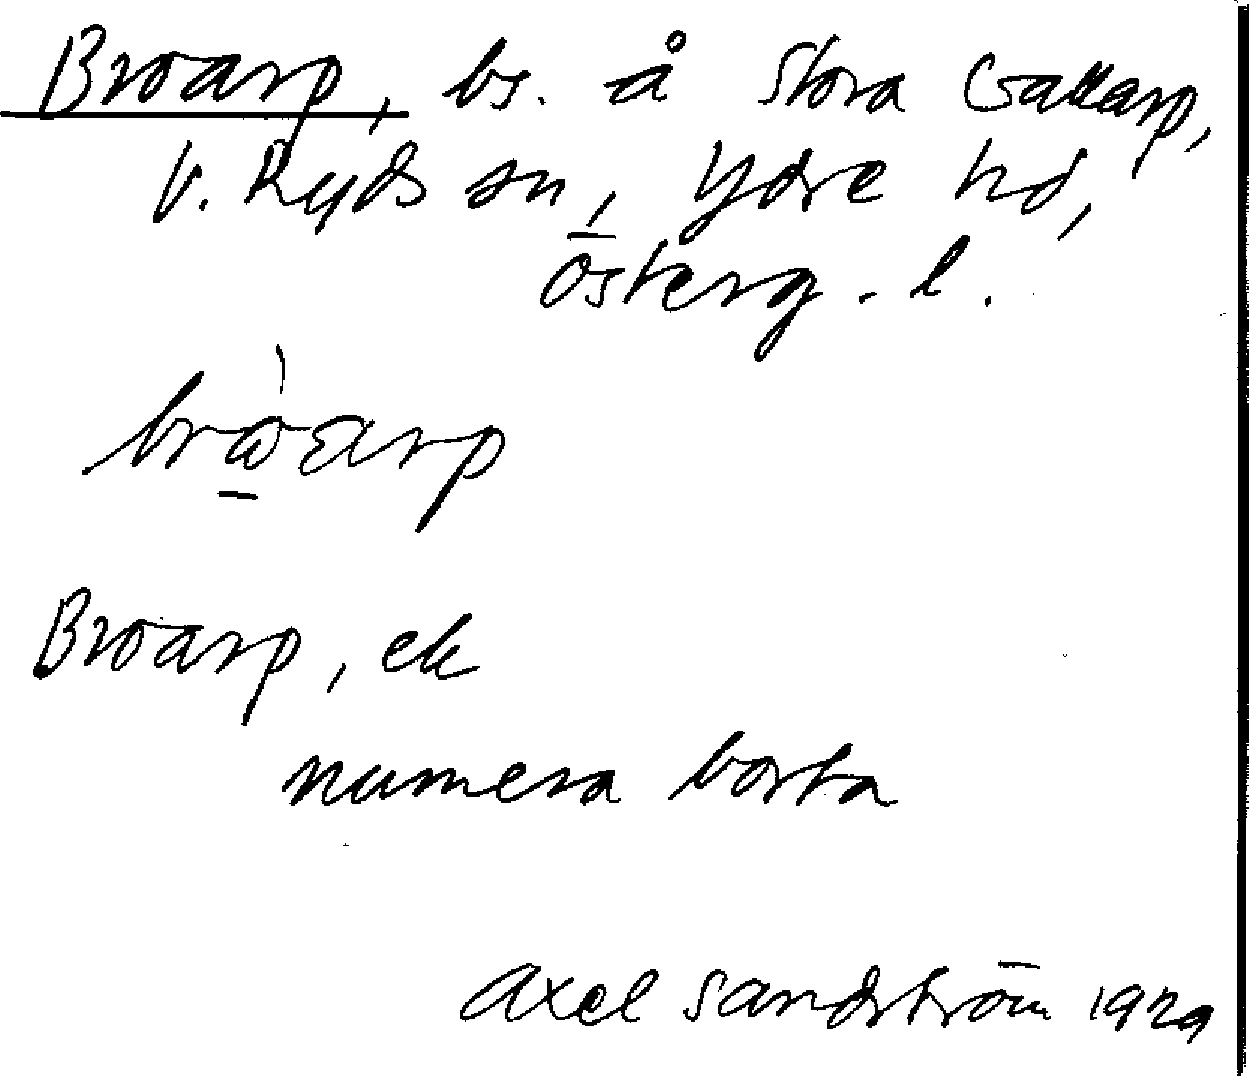 Broarp, bs. å Stora Gattarp,
V. Ryds sn, Ydre hd,
Österg. l.
Broarp, ek
numera borta
Axel Sandström 1929